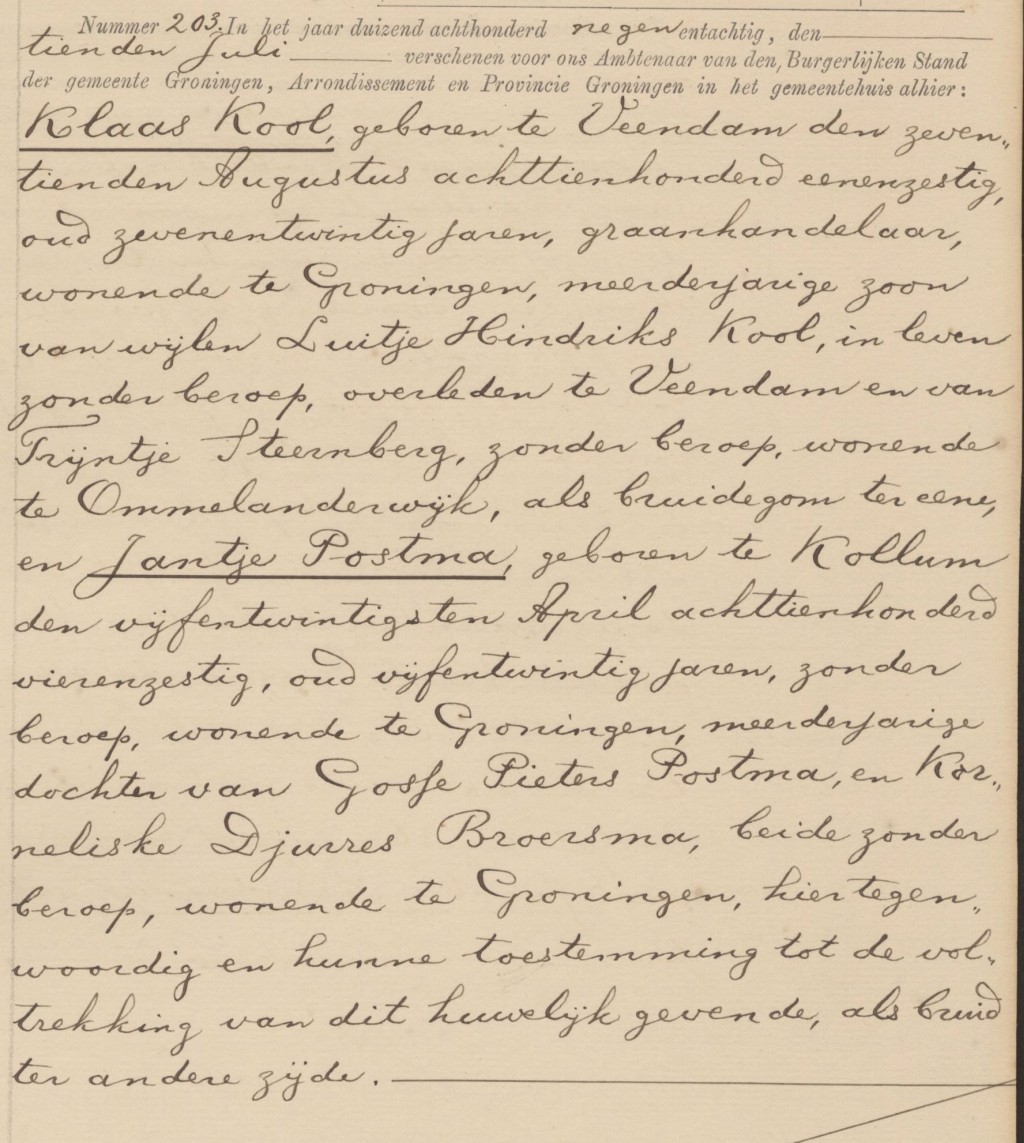 Nummer 203. In het jaar duizend achthonderd negenentachtig, den
tienden Juli verschenen voor ons Ambtenaar van den Burgerlijken Stand
der gemeente Groningen, Arrondissement en Provincie Groningen in het gemeentehuis alhier:
Klaas Kool, geboren te Veendam den zeven„
tienden Augustus achttienhonderd eenenzestig,
oud zevenentwintig jaren, graanhandelaar,
wonende te Groningen, meerderjarige zoon
van wijlen Luitje Hindriks Kool, in leven
zonder beroep, overleden te Veendam en van
Trijntje Steernberg, zonder beroep, wonende
te Ommelanderwijk, als bruidegom ter eene,
en Jantje Postma, geboren te Kollum
den vijfentwintigsten April achttienhonderd
vierenzestig, oud vijfentwintig jaren, zonder
beroep, wonende te Groningen, meerderjarige
dochter van Gosse Pieters Postma, en Kor„
neliske Djurres Broersma, beide zonder
beroep, wonende te Groningen, hier tegen„
woordig en hunne toestemming tot de vol„
trekking van dit huwelijk gevende, als bruid
ter andere zijde.